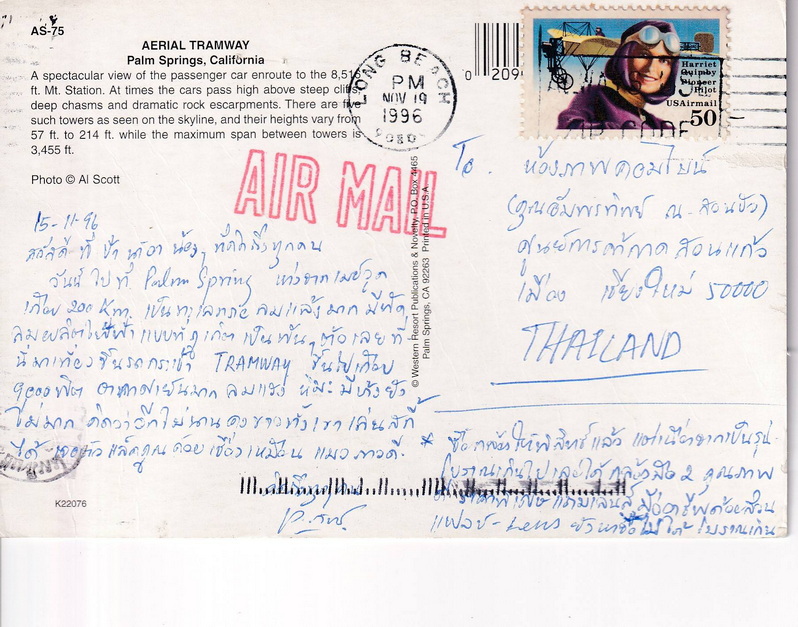 AS-75
AERIAL TRAMWAY
Palm Springs, California
A spectacular view of the passenger car enroute to the 8,516
ft. Mt. Station. At times the cars pass high above steep cliffs,
deep chasms and dramatic rock escarpments. There are five
such towers as seen on the skyline, and their heights vary from
57 ft. to 214 ft. while the maximum span between towers is
3,455 ft.
Photo © Al Scott
LONG BEACH
PM
NOV 19
1996
0 209
Harriet
Quimby
Pioneer
Pilot
USAirmail
50
AIR MAIL
© Western Resort Publications & Novelty, P.O. Box 4465
Palm Springs, CA 92263 Printed in U.S.A.
15-11-96
สวัสดี พี่ ป้า น้า อา น้องๆ ที่คิดถึงทุกคน
วันนี้ ไปที่ Palm Spring ห่างจาก
เกือบ 200 Km. เป็นทะเลทราย ลมแล้งมาก มี
ลมผลิตไฟฟ้า เป็นพันๆ ตัว เลย ที่
นี่ มาเที่ยวขึ้นรถกระเช้า TRAMWAY ขึ้นไปเกือบ
9000 ฟิต อากาศเย็นมาก ลมแรง หิมะ มี ยัง
ไม่มาก คิดว่าอีกไม่นานคงขาวทั้งเขา เล่นสกี
ได้
To. ห้องภาพคอมไบน์
(คุณอัมพรทิพย์ ณ. สอนขัว)
ศูนย์การค้ากาดสวนแก้ว
เมือง เชียงใหม่ 50000
THAILAND
* ซื้อกล้องให้พิสิทธิ์แล้ว
โบราณเกินไป เลยได้ กล้องมือ 2 คุณภาพ
แฟลช - Lens ไม่ได้ โบราณเกิน
คิดถึงทุกคน
K22076